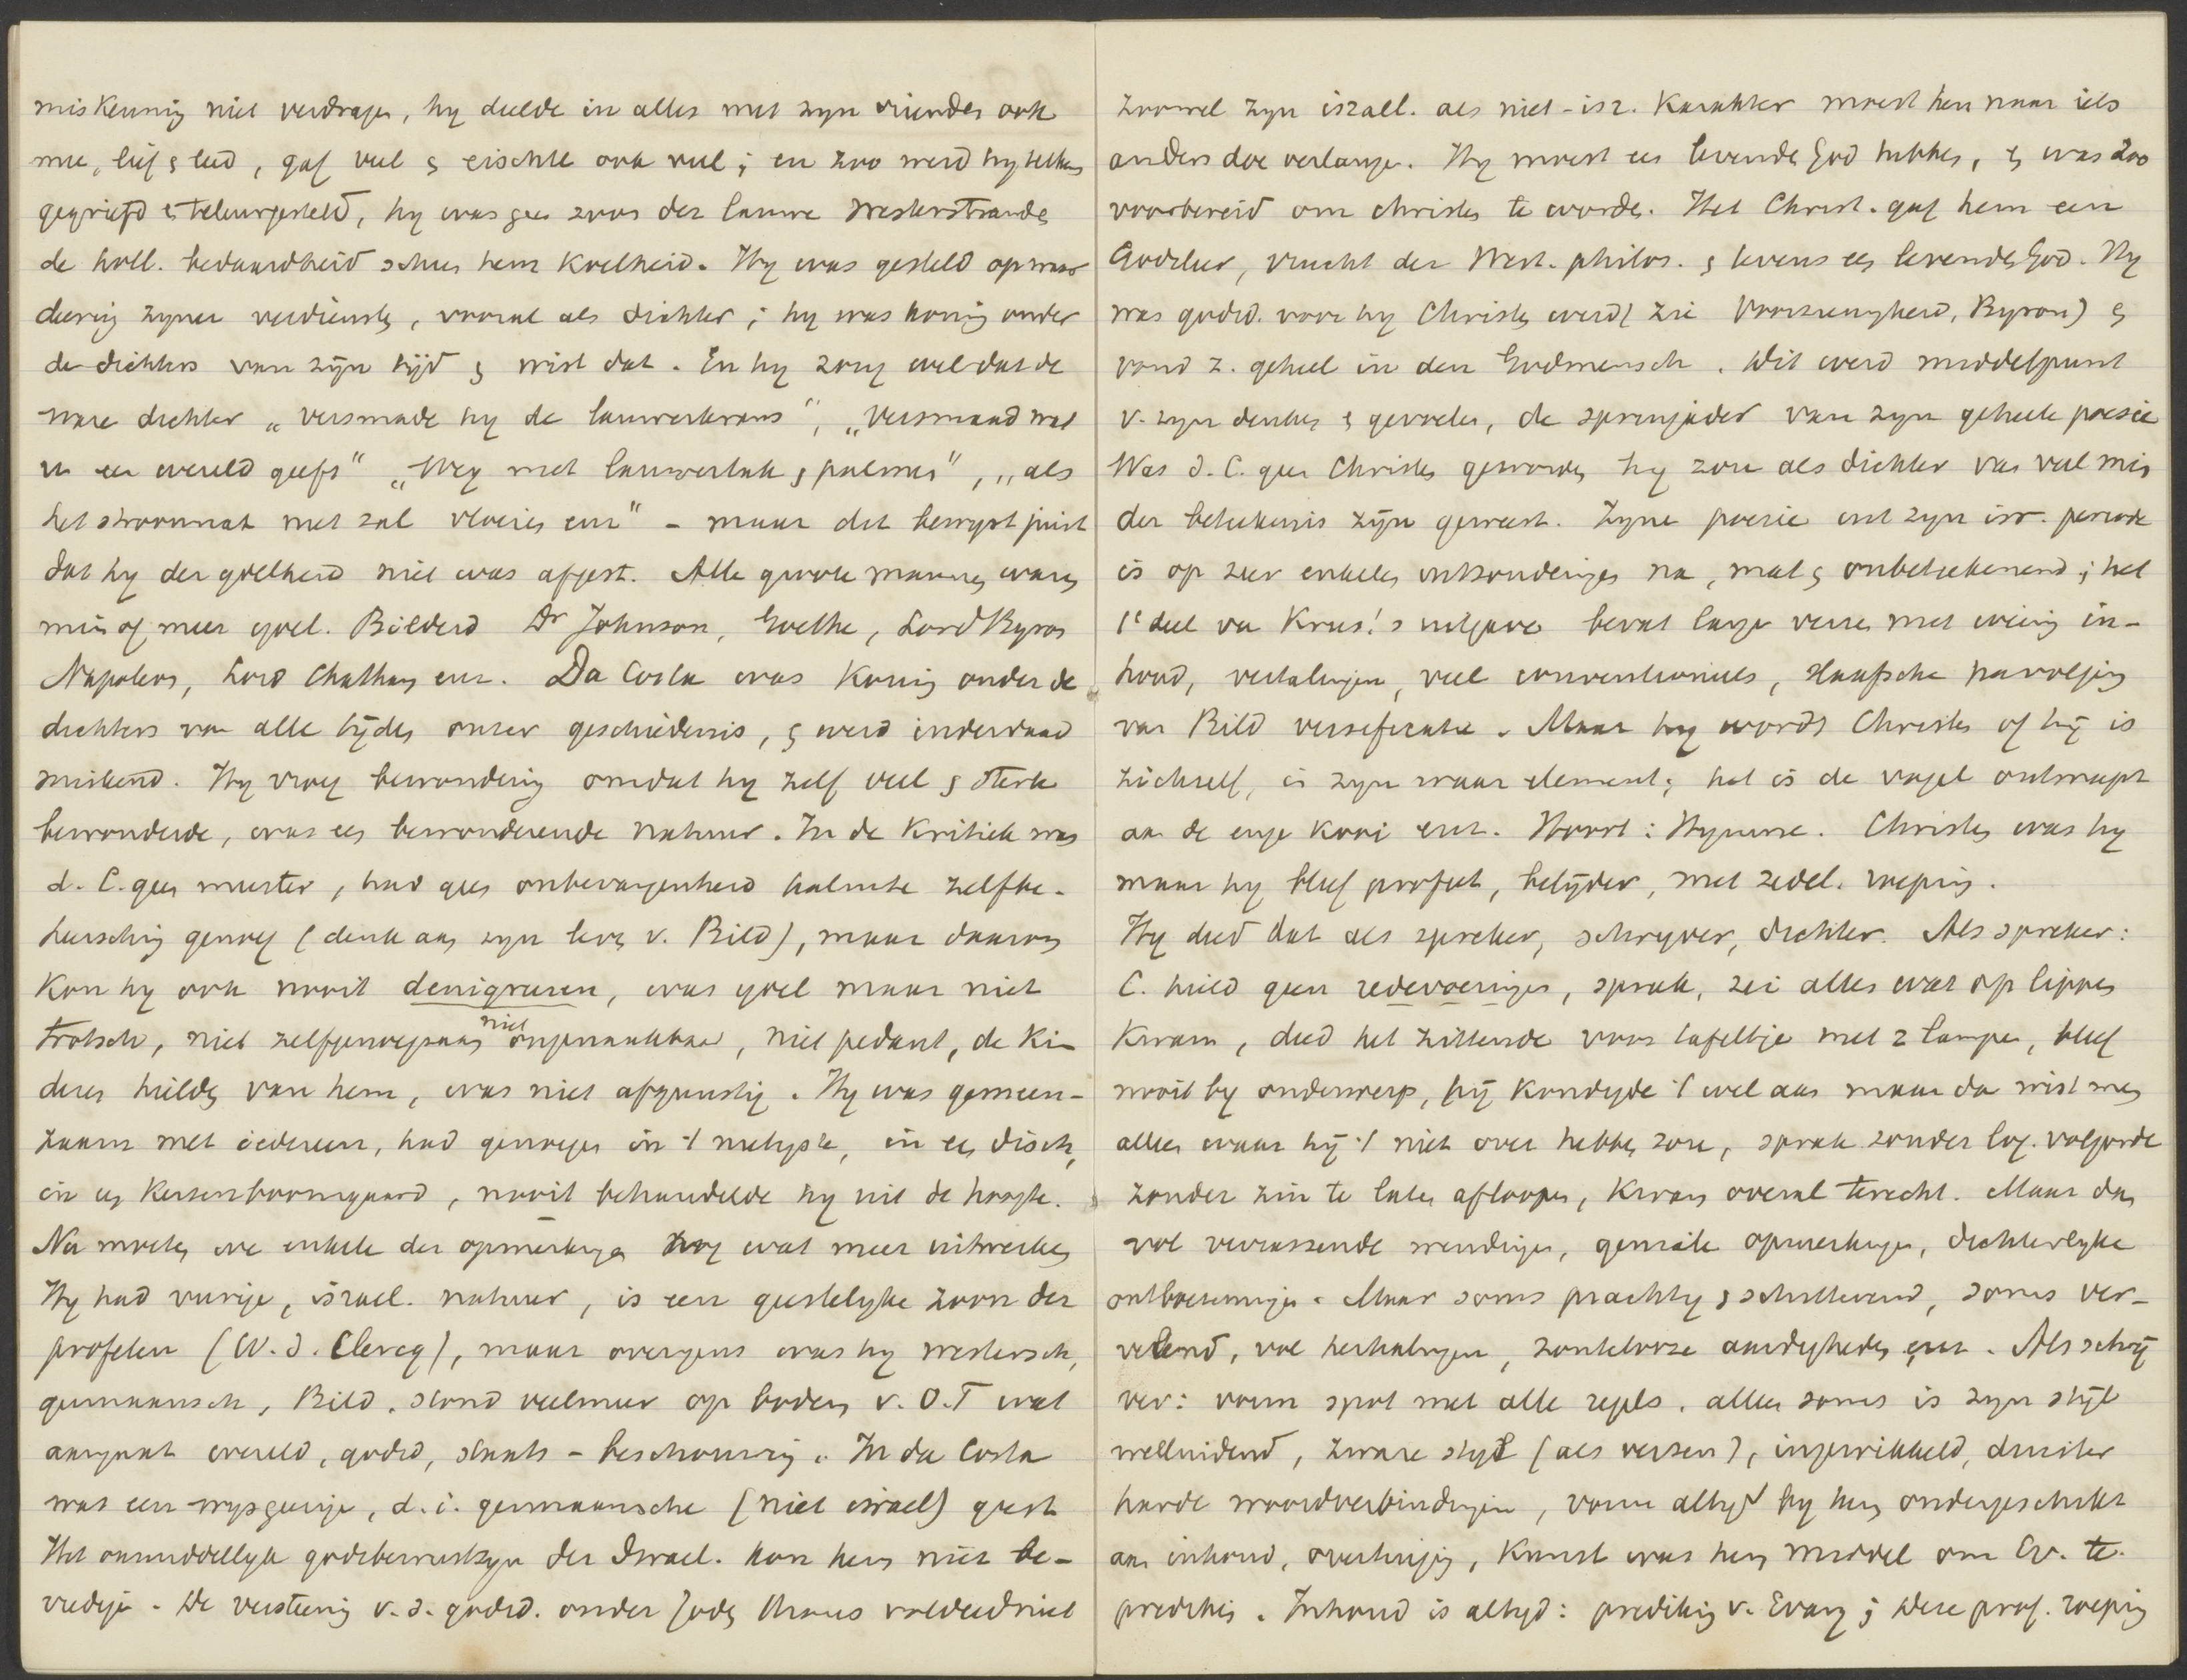 miskenning niet verdragen, hy deelde in alles met zyn vrienden ook
mee, lief & leed, gaf veel & eischte ook veel; en zoo werd hy telkens
gegriefd & teleurgesteld, hy was geen zoon der lauwe Westerstranden
de holl. bedaardheid scheen hem koelheid. Hy was gesteld op waar
deering zyner verdiensten, vooral als dichter; hy was koning onder
de dichters van zijn tijd & wist dat. En hy zong wel dat de
ware dichter „versmade hy de lauwerkrans", „Versmaad wat
u een wereld geeft" „Weg met lauwertak & palmen", „als
het stroomnat met zal vloeien enz" - maar dit bewyst juist
dat hy der ydelheid niet was afgest. Alle groote mannen waren
min of meer ydel. Bilderd Dr Johnson, Goethe, Lord Byron
Napoleon, Lord Chatham enz. Da Costa was Koning onder de
dichters van alle tijden onzer geschiedenis, & werd inderdaad
miskend. Hy vroeg bewondering omdat hy zelf veel & sterk
bewonderde, was een bewonderende natuur. In de Kritiek was
d. C. geen meester, had geen onbevangenheid kalmte zelfbe-
heersching genoeg (denk aan zyn leven v. Bild), maar daarom
Kon hy ook nooit denigreeren, was ydel maar niet
trotsch, niet zelfgenoegzaam niet ongenaakbaar, niet pedant, de Ki-
deren hielden van hem, was niet afgunstig. Hy was gemeen-
zaam met iedereen, had genoegen in 't nietigste, in een disch,
in een Kersenboomgaard, nooit behandelde hy uit de hoogte.
Nu moeten we enkele der opmerkingen nog wat meer uitwerken
Hy had vurige, israel. natuur, is een geestelyke zoon der
profeten (W. d. Clercq), maar overigens was hy westersch,
germaansch, Bild. stond veelmeer op bodem v. O.T wat
aangaat wereld, godsd, staats-beschouwing. In da Costa
was een wysgeerige, d.i. germaansche (niet israel) geest
Het onmiddellyk godsbewustzyn der Israel. kon hem niet be-
vredigen. De versteening v.d. godsd. onder Joden voldeed niet
zoowel zyn israel. als niet-isr. Karakter moest hem naar iets
anders doen verlangen. Hy moest een levenden God hebben, & was zoo
voorbereid om christen te worden. Het Christ. gaf hem een
Godsleer, vrucht der West. philos. & tevens een levenden God. Hy
was godsd. voor hy Christen werd (zie Voorzienigheid, Byron) &
vond z. geheel in den Godmensch. Dit werd middelpunt
v. zyn denken & gevoelen, de springader van zyn geheele poesie
Was d. C. geen Christen geworden hy zou als dichter van veel min
der beteekenis zijn geweest. Zyne poezie uit zyn isr. periode
is op zeer enkele uitzonderingen na, mat & onbeteekenend; het
1e deel van Krus.'s uitgave bevat lange verzen met weinig in-
houd, vertalingen, veel conventioneels, slaafsche navolging
van Bild versificatie. Maar hy wordt Christen of hij is
zichzelf, in zyn waar element; het is de vogel ontsnapt
aan de enge kooi enz. Hoort: Hymne. Christen was hy
maar hy bleef profeet, belijder, met zedel. roeping.
Hy deed dat als spreker, schryver, dichter. Als spreker:
C. hield geen redevoeringen, sprak, zei alles wat op lippen
Kwam, deed het zittende voor tafeltje met 2 lampen, bleef
nooit by onderwerp, hij kondigde 't wel aan maar dan wist men
alleen waar hij 't niet over hebben zou, sprak zonder log. volgorde
zonder zin te laten afloopen, kwam overal terecht. Maar dan
vol verrassende wendingen, geniale opmerkingen, dichterlyke
ontboezemingen. Maar soms prachtig & schitterend, soms ver-
velend, vol herhalingen, zoutelooze aardigheden enz. Als schrij
ver: vorm spot met alle regels. alleen soms is zyn stijl
welluidend, zware styl (als verzen), ingewikkeld, duister
harde woordverbindingen, vorm altyd by hem ondergeschikt
aan inhoud, overtuiging, Kunst was hem middel om Ev. te
prediken. Inhoud is altyd: prediking v. Evang; deze prof. roeping